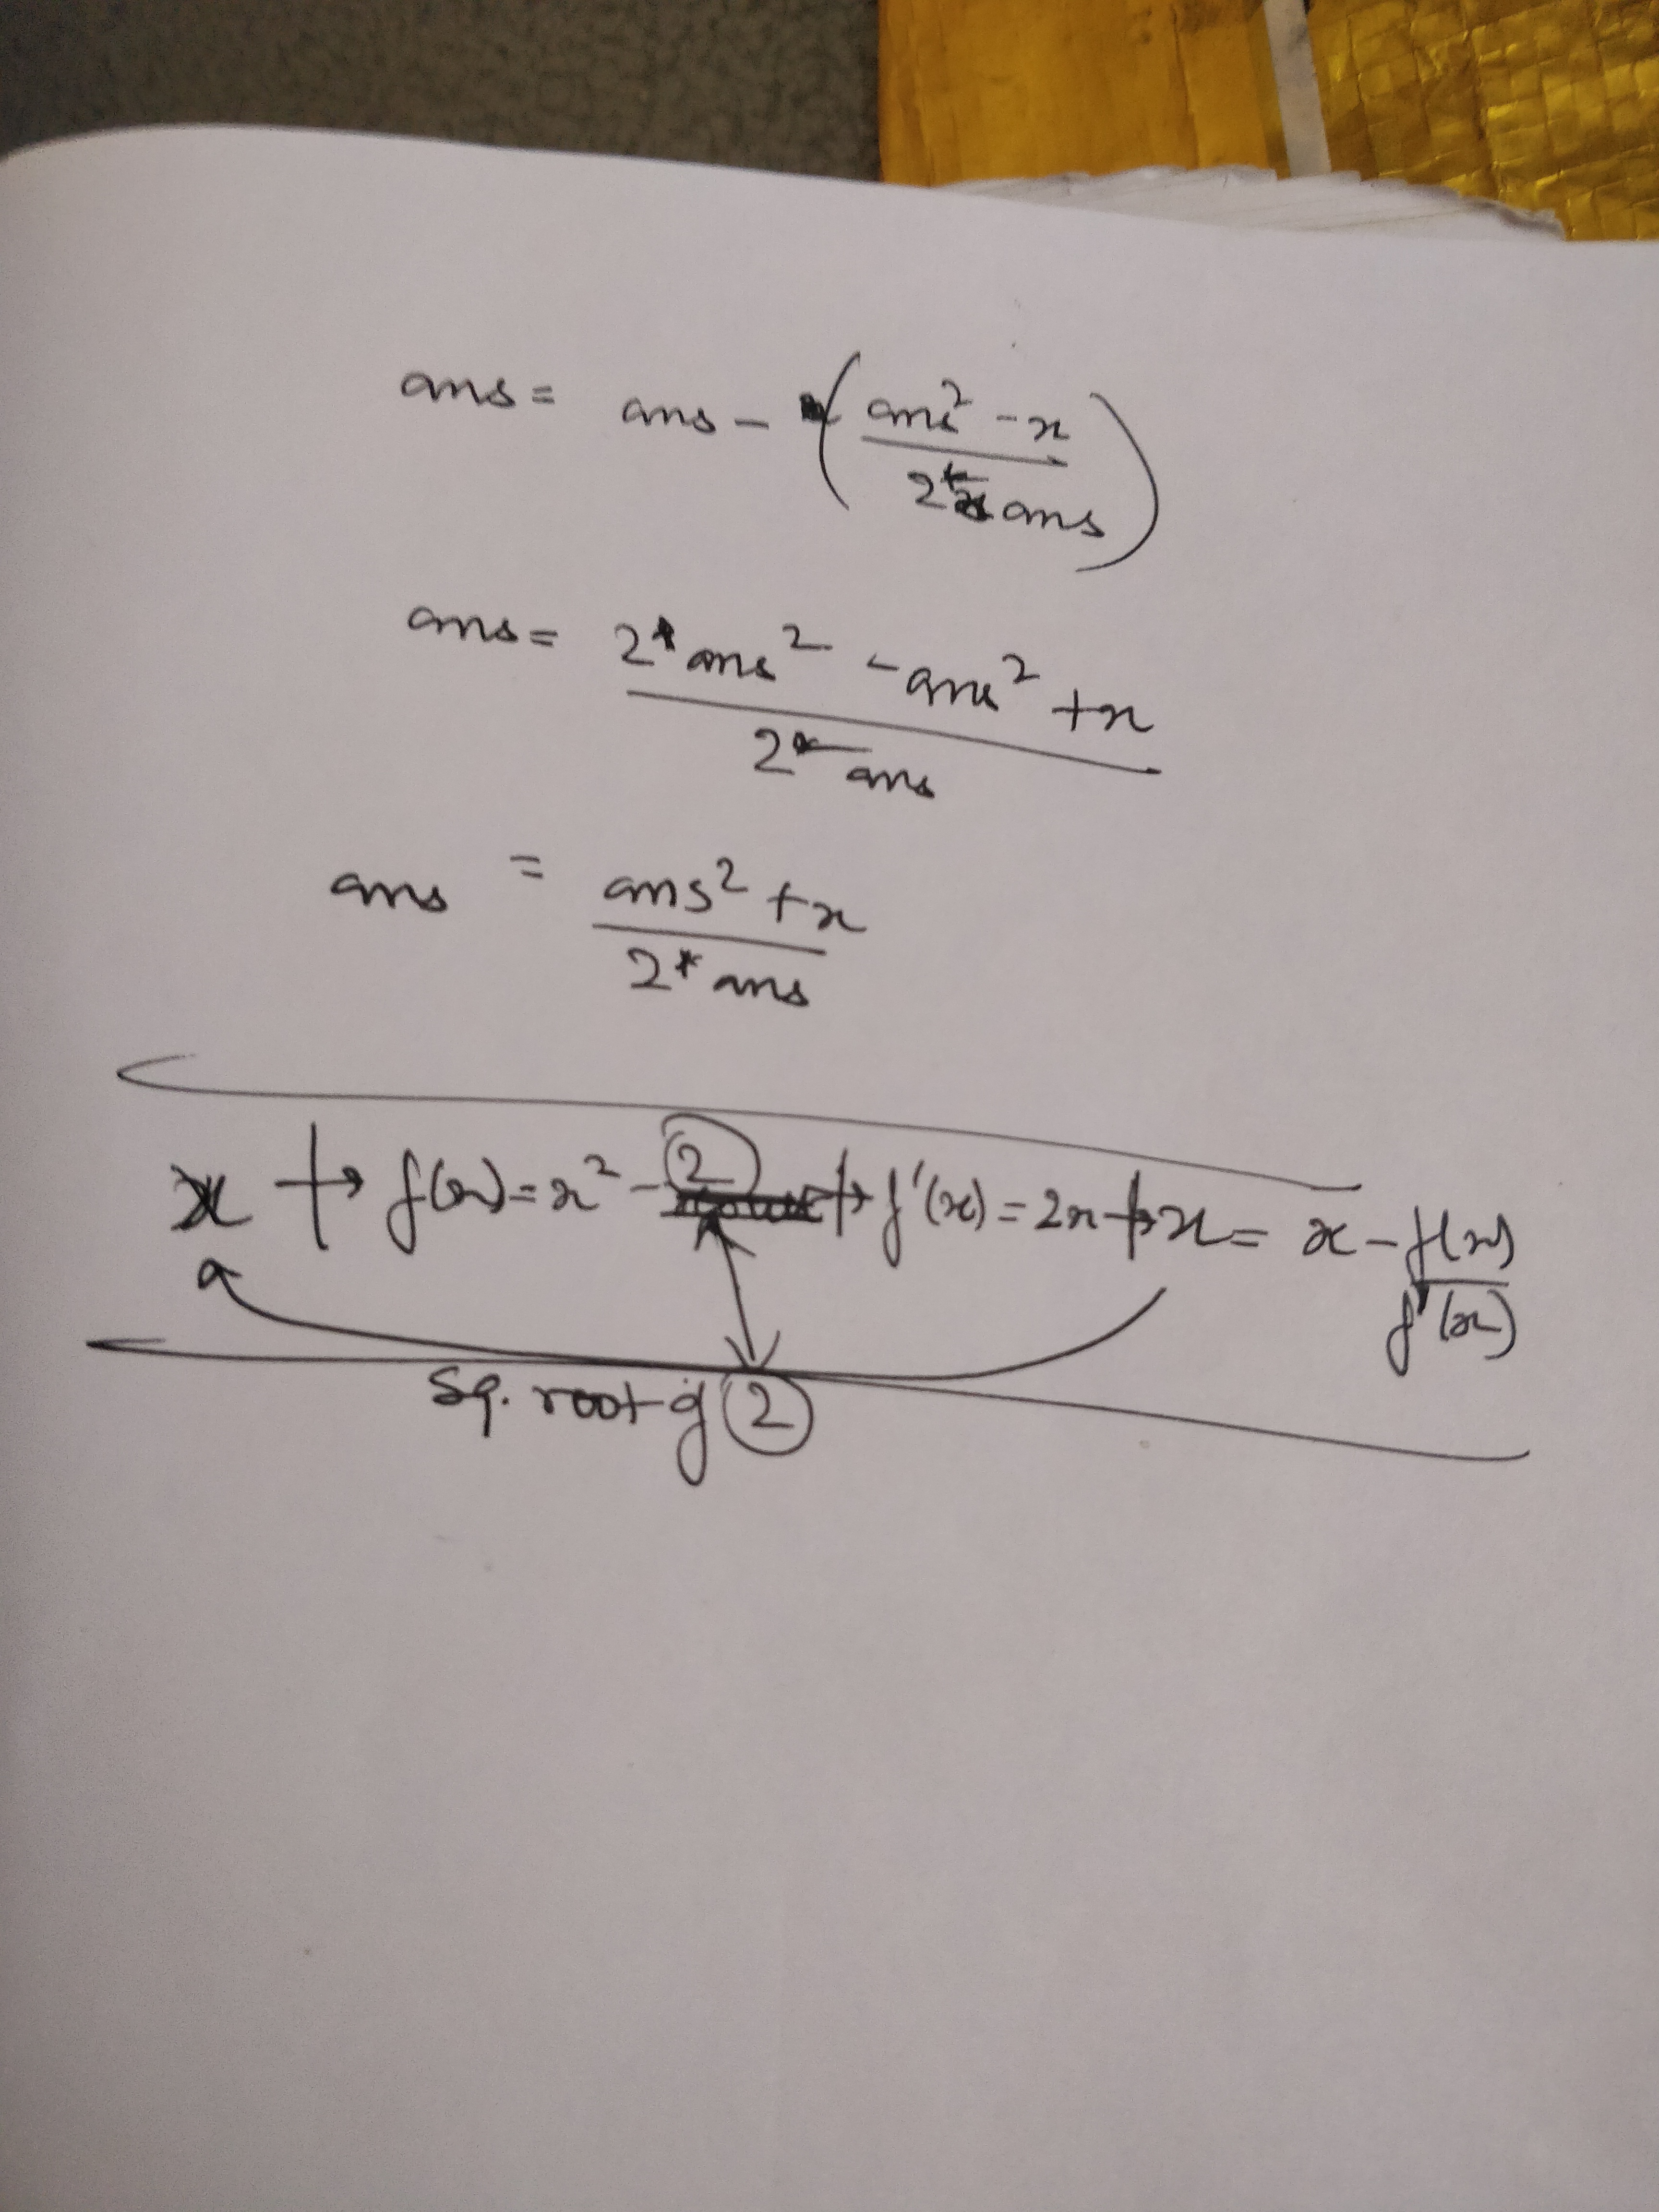 ans = ans - (ans² - x / 2* ans)
ans = 2*ans² - ans² + x / 2* ans
ans = ans² + x / 2* ans
x → f(x) = x² - 2 → f'(x) = 2x → x = x - f(x) / f'(x)
Sq. root of 2